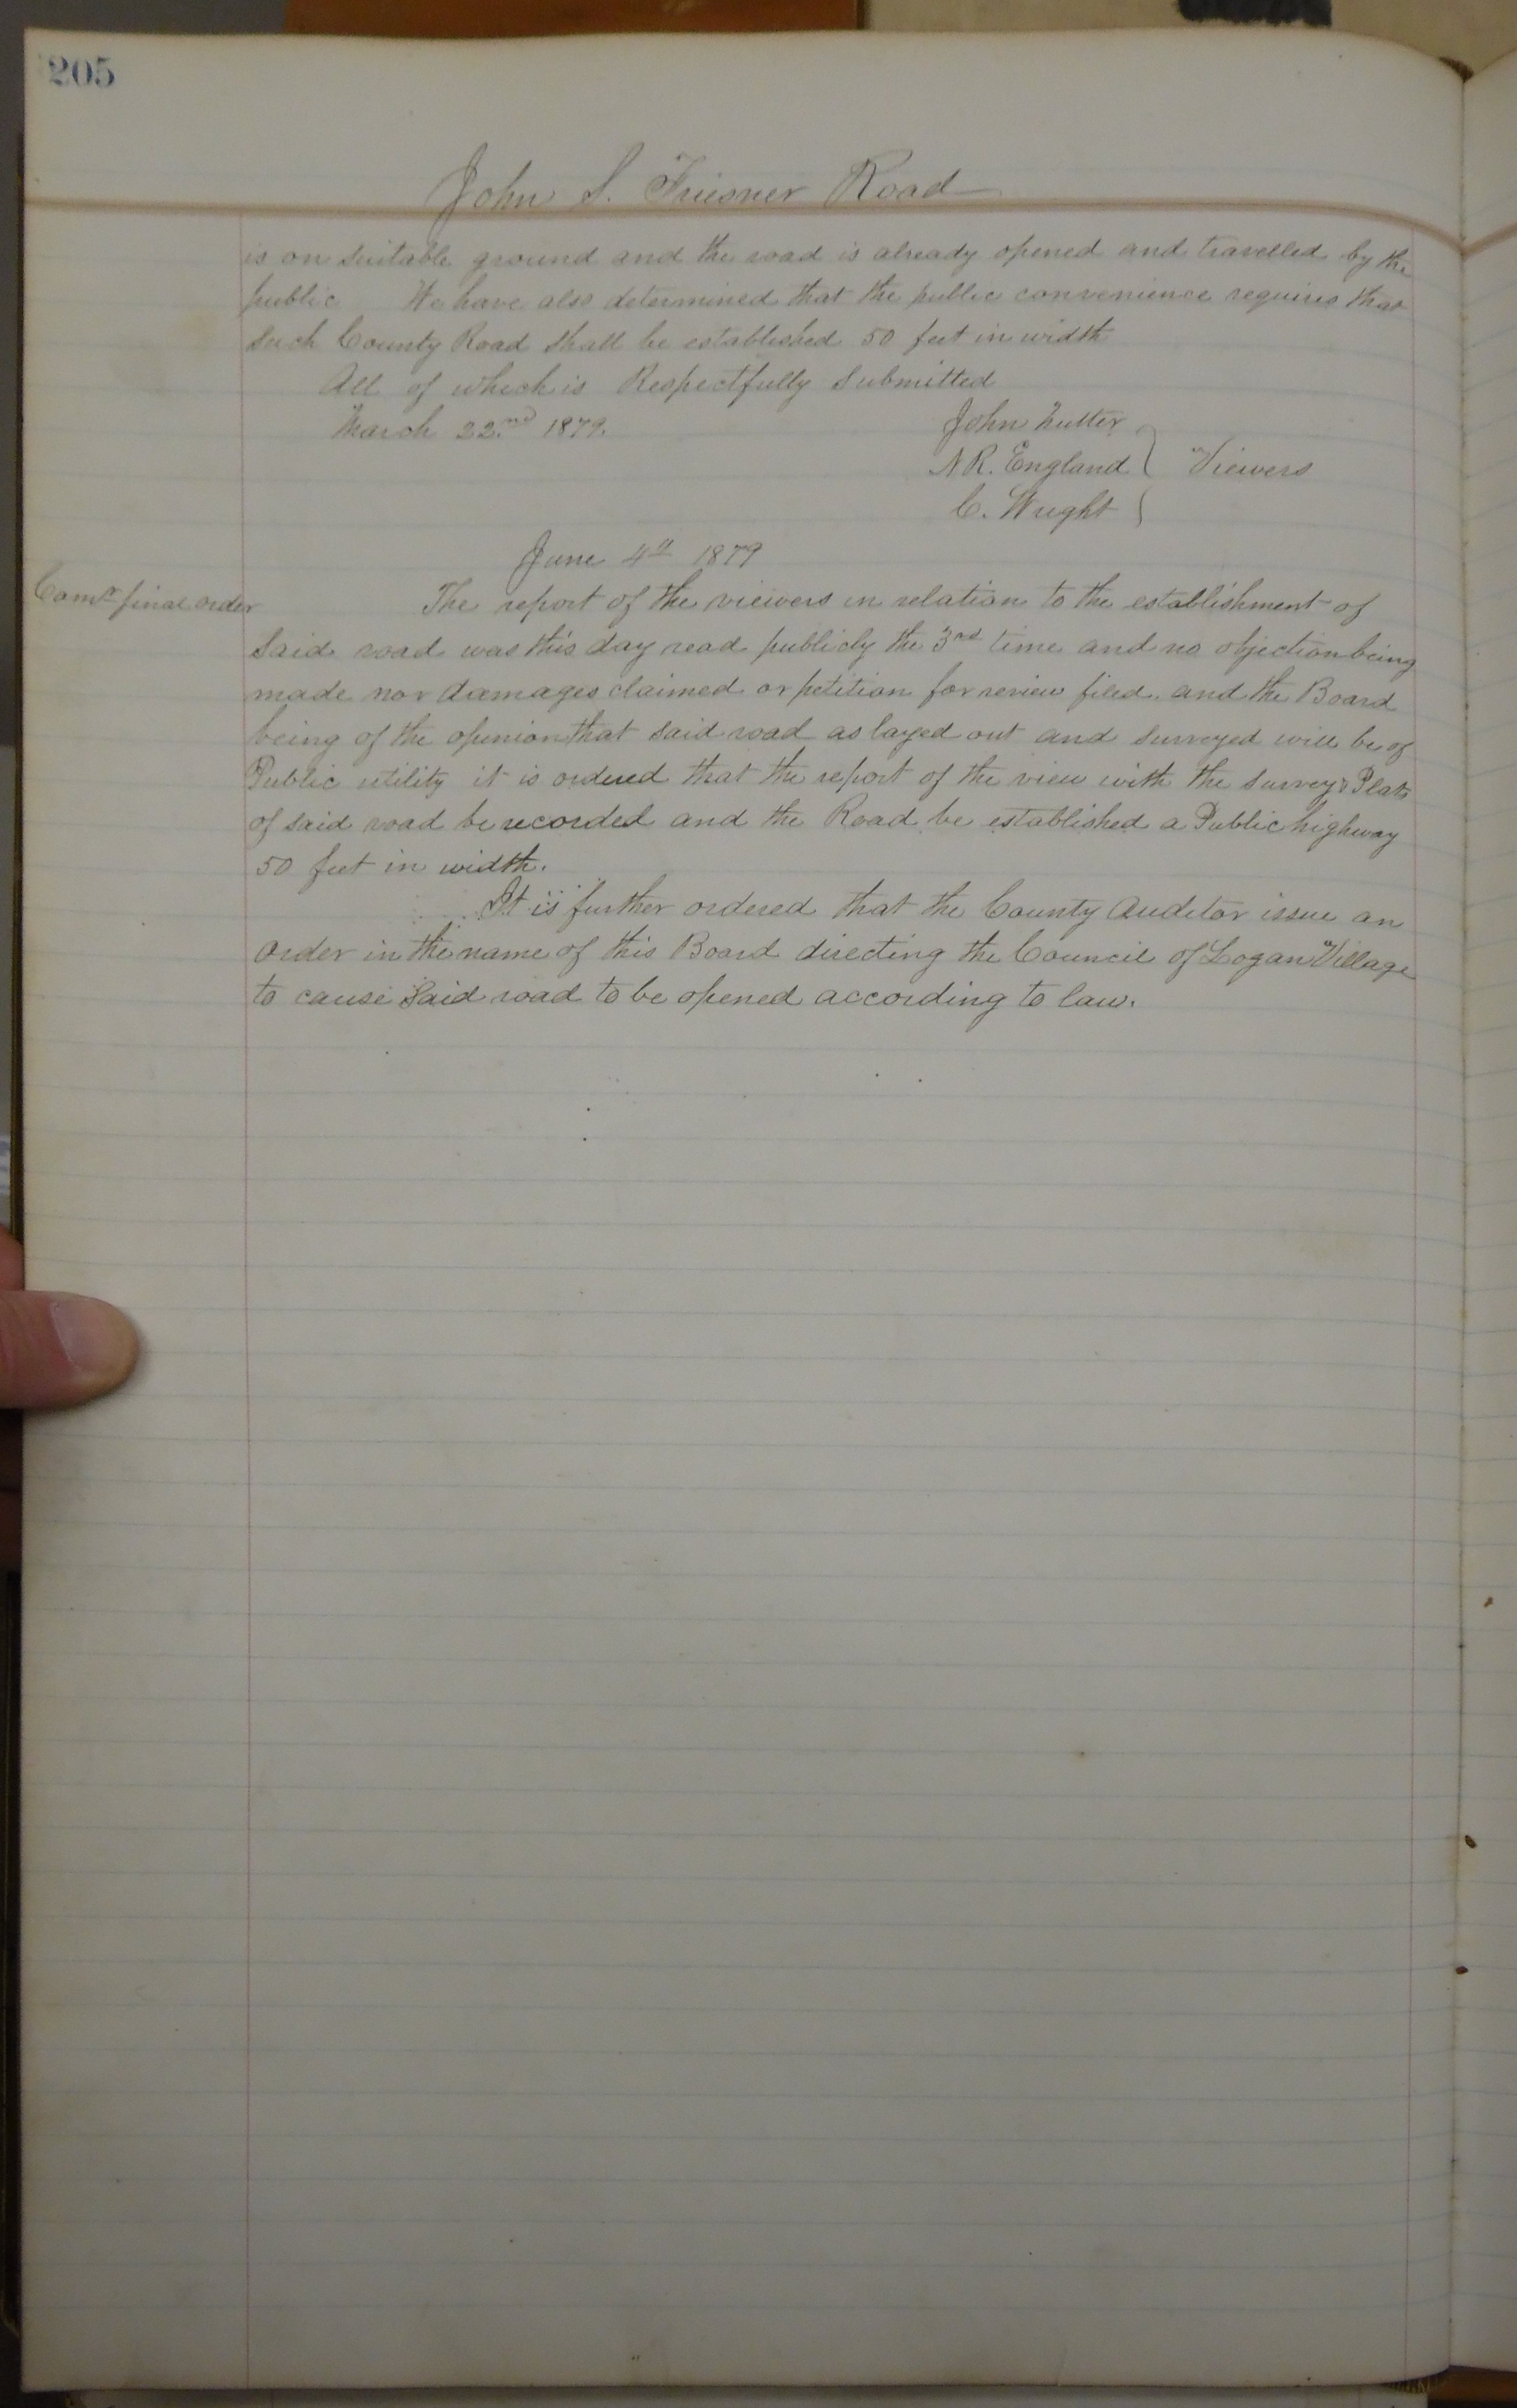 205
John S. Friesner Road
is on suitable ground and the road is already opened and travelled by the
public We have also determined that the public convenience requires that
such County Road shall be established 50 feet in width
All of which is Respectfully Submitted
March 22nd 1879.
John Nutter
N R. England } Viewers
C. Wright
June 4th 1879
Comrs final order
The report of the viewers in relation to the establishment of
said road was this day read publicly the 3rd time and no objection being
made nor damages claimed or petition for review filed. and the Board
being of the opinion that said road as layed out and surveyed will be of
Public utility it is ordered that the report of the view with the survey & Plat
of said road be recorded and the Road be established a Public highway
50 feet in width.
It is further ordered that the County Auditor issue an
order in the name of this Board directing the Council of Logan Village
to cause said road to be opened according to law.